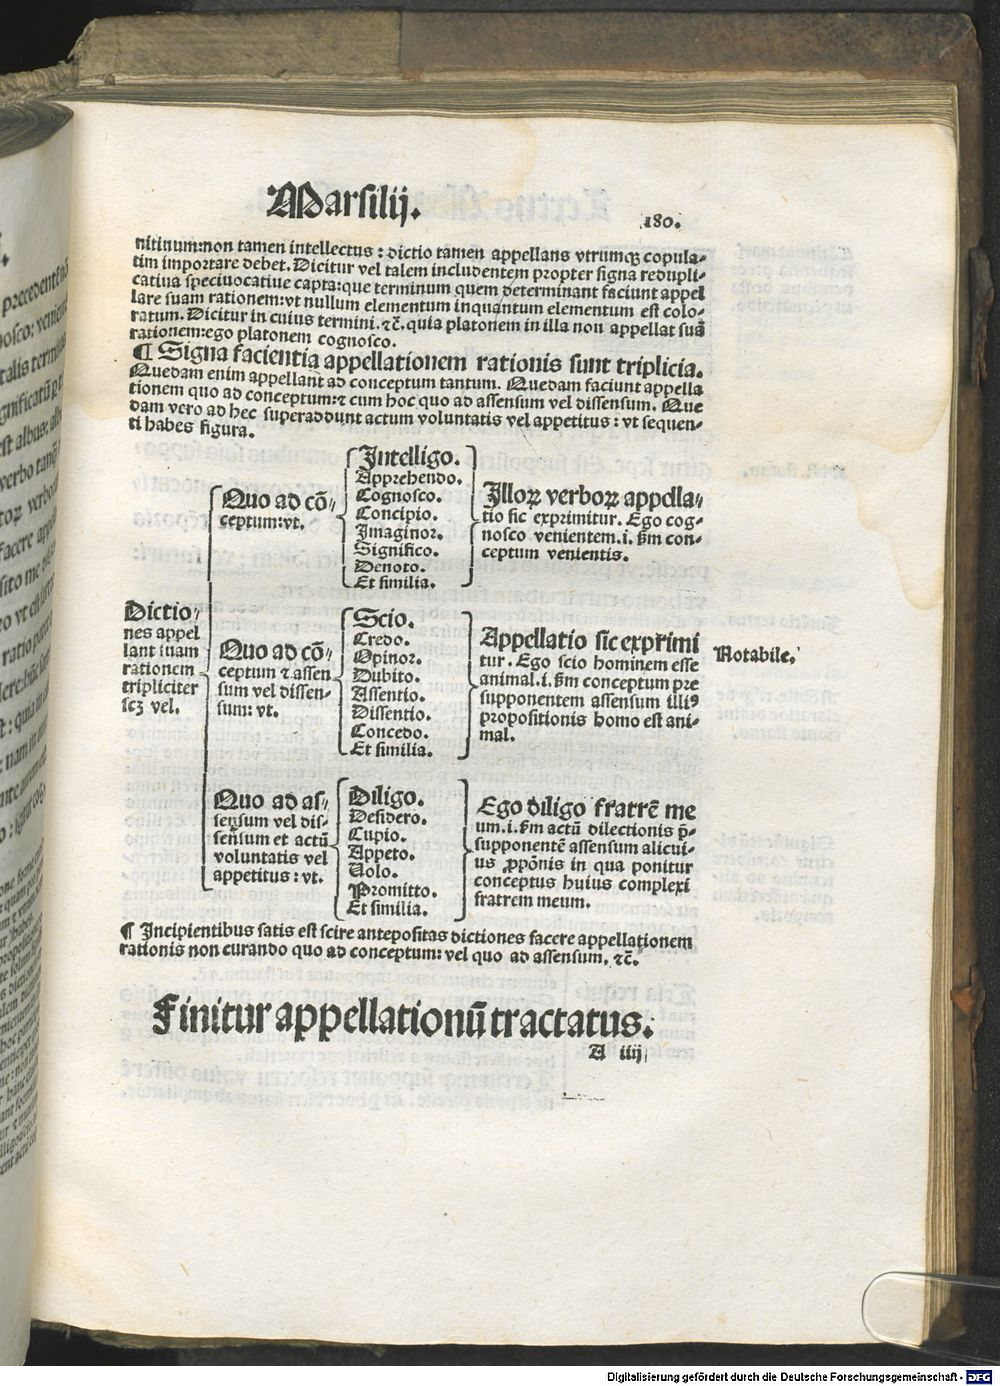 Marsilij.
180.
nitinum:non tamen intellectus : dictio tamen appellans vtrumqꝫ copula-
tim importare debet. Dicitur vel talem includentem propter signa redupli-
catiua speciuocatiue capta:que terminum quem determinant faciunt appel
lare suam rationem:vt nullum elementum inquantum elementum est colo-
ratum. Dicitur in cuius termini. ⁊c̄. quia platonem in illa non appellat suā
rationem:ego platonem cognosco.
¶ Signa facientia appellationem rationis sunt triplicia.
Quedam enim appellant ad conceptum tantum. Quedam faciunt appella
tionem quo ad conceptum:⁊ cum hoc quo ad assensum vel dissensum. Que
dam vero ad hec superaddunt actum voluntatis vel appetitus : vt sequen-
ti habes figura.
Dictio-
nes appel
lant suam
rationem
tripliciter
scꝫ vel.
Quo ad cō-
ceptum:vt.
Intelligo.
Apprehendo.
Cognosco.
Concipio.
Imaginor.
Significo.
Denoto.
Et similia.
Illoꝝ verboꝝ appella-
tio sic exprimitur. Ego cog-
nosco venientem .i. ẜm con-
ceptum venientis.
Quo ad cō-
ceptum ⁊ assen
sum vel dissen-
sum: vt.
Scio.
Credo.
Opinor.
Dubito.
Assentio.
Dissentio.
Concedo.
Et similia.
Appellatio sic exprimi
tur. Ego scio hominem esse
animal .i. ẜm conceptum pre
supponentem assensum illiꝰ
propositionis homo est ani-
mal.
Notabile.
Quo ad as-
sensum vel dis-
sensum et actū
voluntatis vel
appetitus : vt.
Diligo.
Desidero.
Cupio.
Appeto.
Uolo.
Promitto.
Et similia.
Ego diligo fratrē me
um .i. ẜm actū dilectionis p̄-
supponentē assensum alicui-
us ꝓpōnis in qua ponitur
conceptus huius complexi
fratrem meum.
¶ Incipientibus satis est scire antepositas dictiones facere appellationem
rationis non curando quo ad conceptum: vel quo ad assensum. ⁊c̄.
Finitur appellationū tractatus.
A iiij
Digitalisierung gefördert durch die Deutsche Forschungsgemeinschaft - DFG